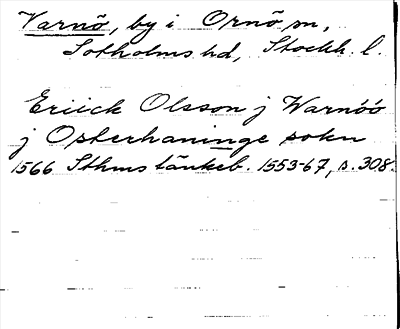 Varnö, by i Ornö sn,
Sotholms hd, Stockh. l.
Eriick Olsson j Warnöö
j Opterhaninge sokn
1566 Sthms tänkeb. 1553-67, s. 308.